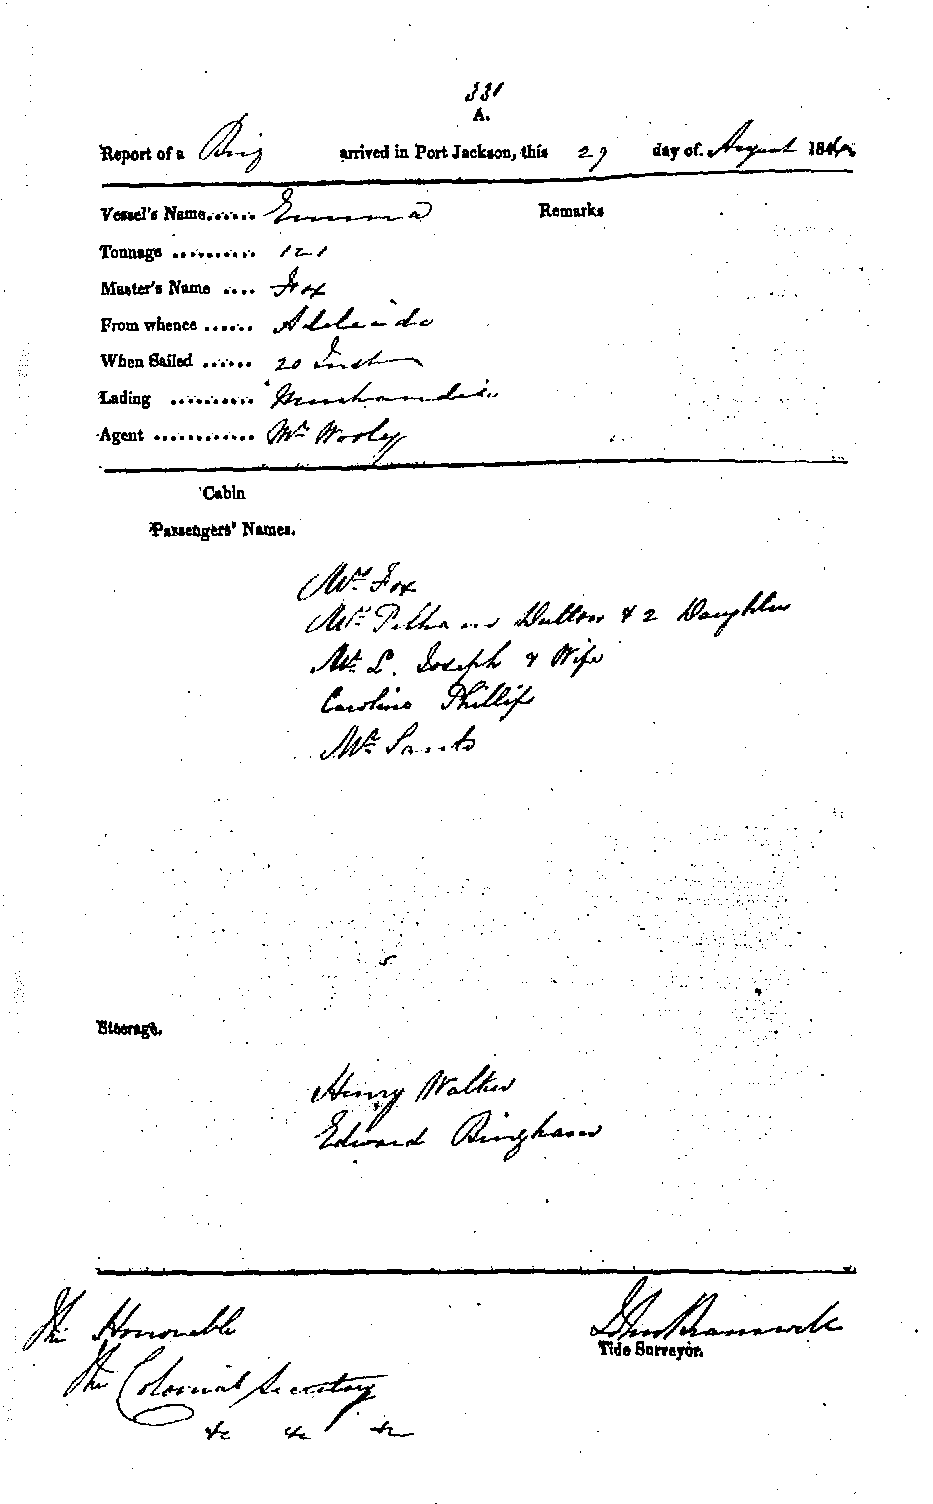 331
A.
Report of a Brig arrived in Port Jackson, this 29 day of August 184
Vessel's Name...... Emma Remarks
Tonnage .......... 121
Master's Name .... Fox
From whence ...... Adelaide
When Sailed ...... 20 Inst
Lading .......... Merchandise
Agent ............ Mr Wooley
Cabin
Passengers' Names.
Mrs Fox
Pelham Dutton & 2 Daughters
Mr L. Joseph & Wife
Caroline Phillips
Mr
Steerage.
Henry Walker
Edward Bingham
The Honorable
Tide Surveyor.
The Colonial Secretary
&c &c &c